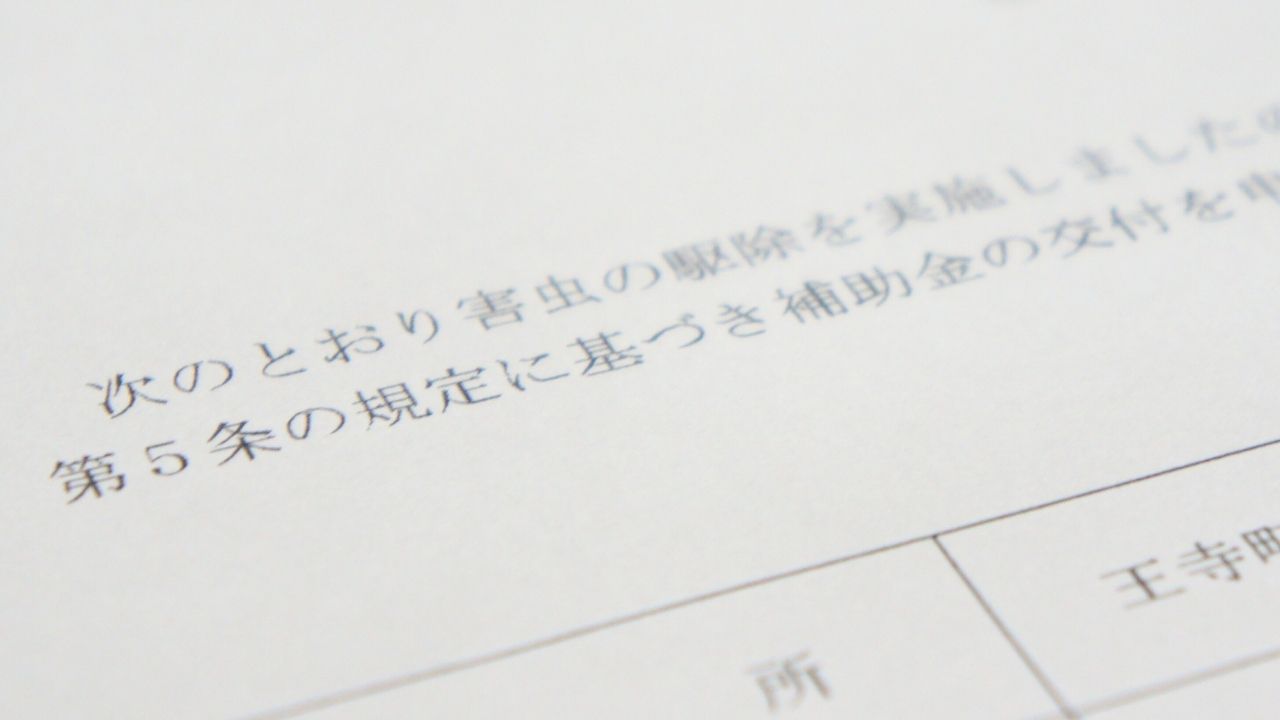 次のとおり害虫の駆除を実施しましたの
第5条の規定に基づき補助金の交付を申
王寺町
所